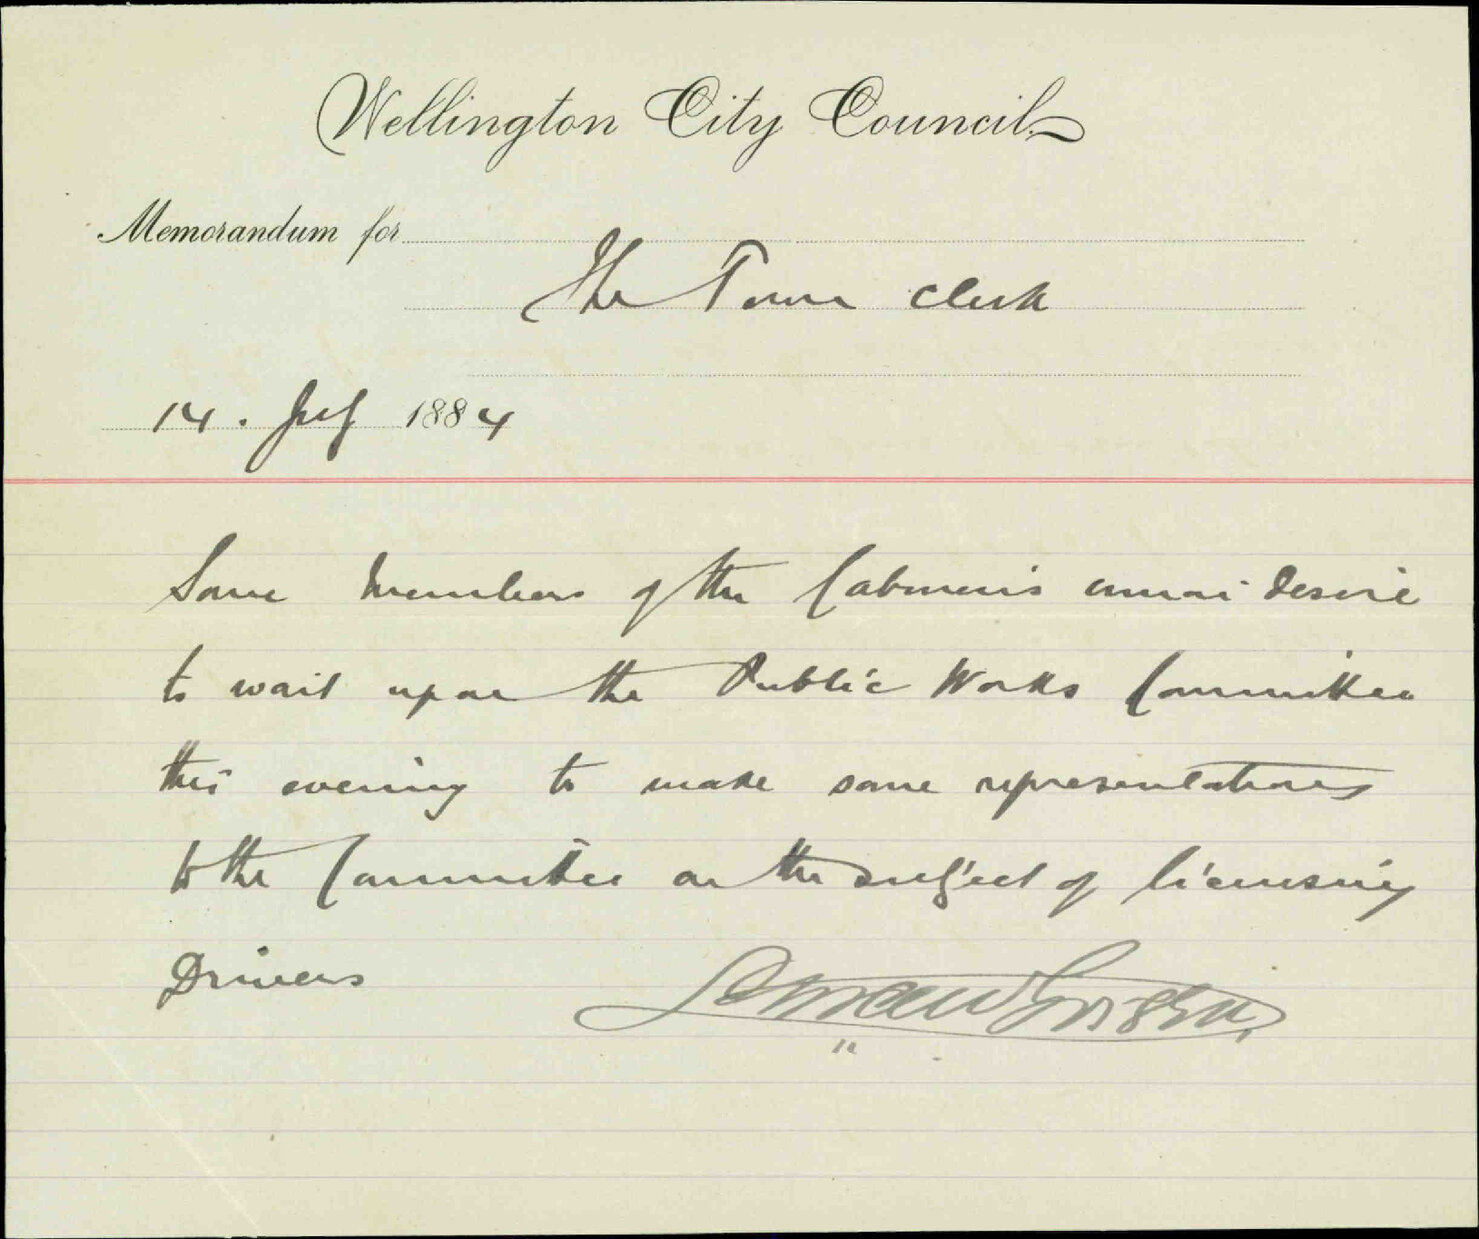 Wellington City Council
Memorandum for
The Town Clerk
14. July 1884
Some Members of the Cabmen's union desire
to wait upon the Public Works Committee
this evening to make some representations
to the Committee on the subject of licensing
Drivers